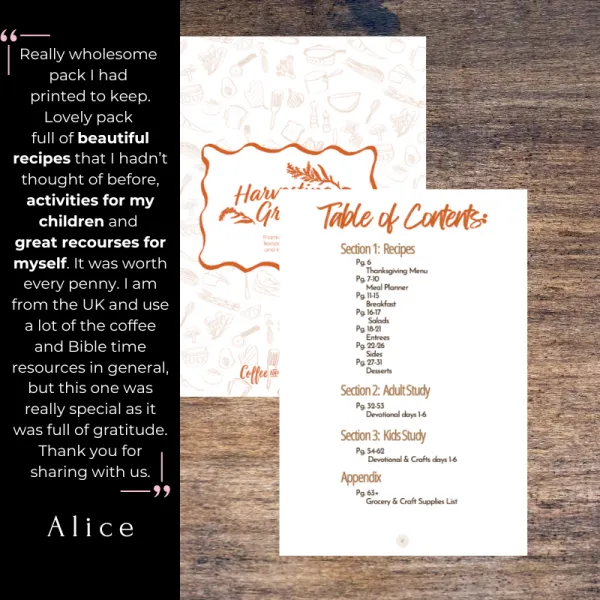 “
Really wholesome
pack I had
printed to keep.
Lovely pack
full of beautiful
recipes that I hadn’t
thought of before,
activities for my
children and
great recourses for
myself. It was worth
every penny. I am
from the UK and use
a lot of the coffee
and Bible time
resources in general,
but this one was
really special as it
was full of gratitude.
Thank you for
sharing with us.
”
Alice
Coffee
Table of Contents:
Section 1: Recipes
Pg. 6
Thanksgiving Menu
Pg. 7-10
Meal Planner
Pg. 11-15
Breakfast
Pg. 16-17
Salads
Pg. 18-21
Entrees
Pg. 22-26
Sides
Pg. 27-31
Desserts
Section 2: Adult Study
Pg. 32-53
Devotional days 1-6
Section 3: Kids Study
Pg. 54-62
Devotional & Crafts days 1-6
Appendix
Pg. 63+
Grocery & Craft Supplies List